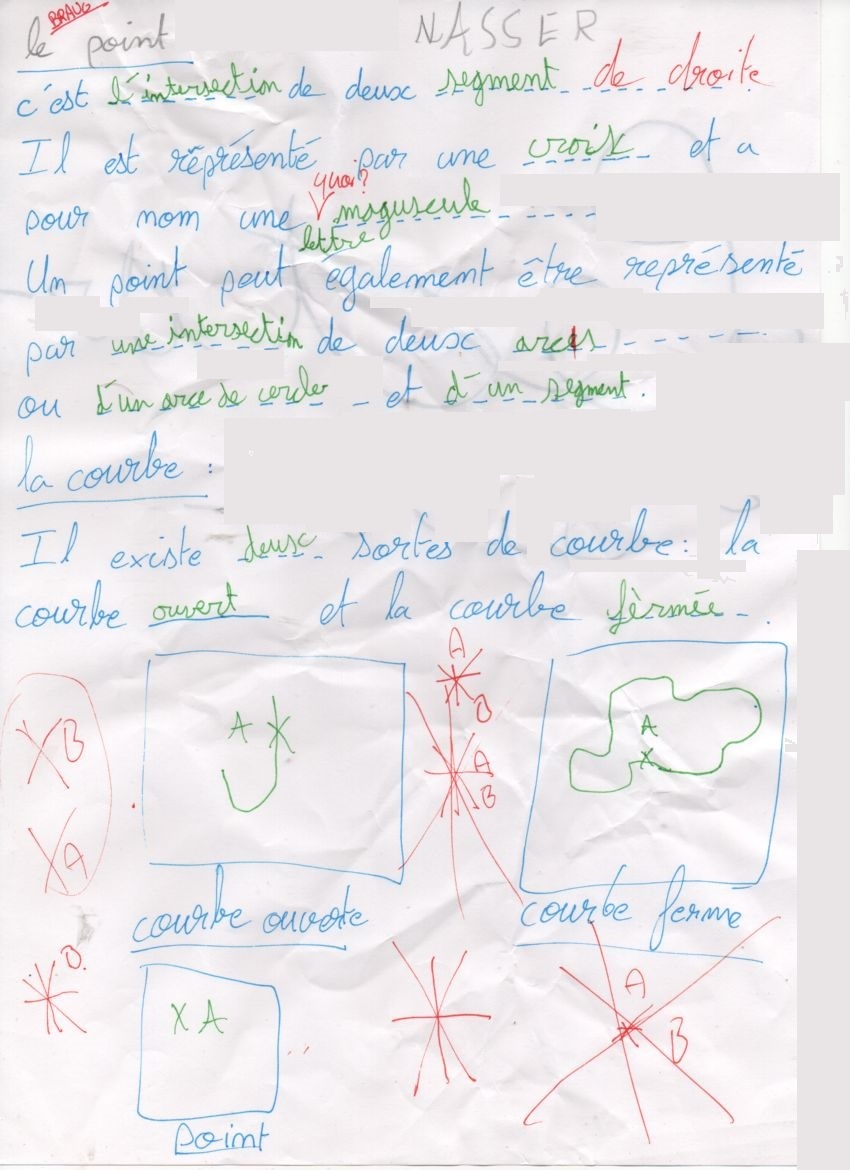 BRAVO
le point NASSER
c'est l'intersection de deux segment de droite
Il est réprésenté par une croix et a
quoi?
pour nom une maguscule
lettre
Un point peut également être représenté
par une intersection de deux arces
ou d'un arce de cercler et d'un segment.
la courbe :
Il existe deux sortes de courbe: la
courbe ouvert et la courbe fèrmée.
A
B
A
A
A
B
B
A
courbe ouvete courbe fermé
B.
X A
A
B
point